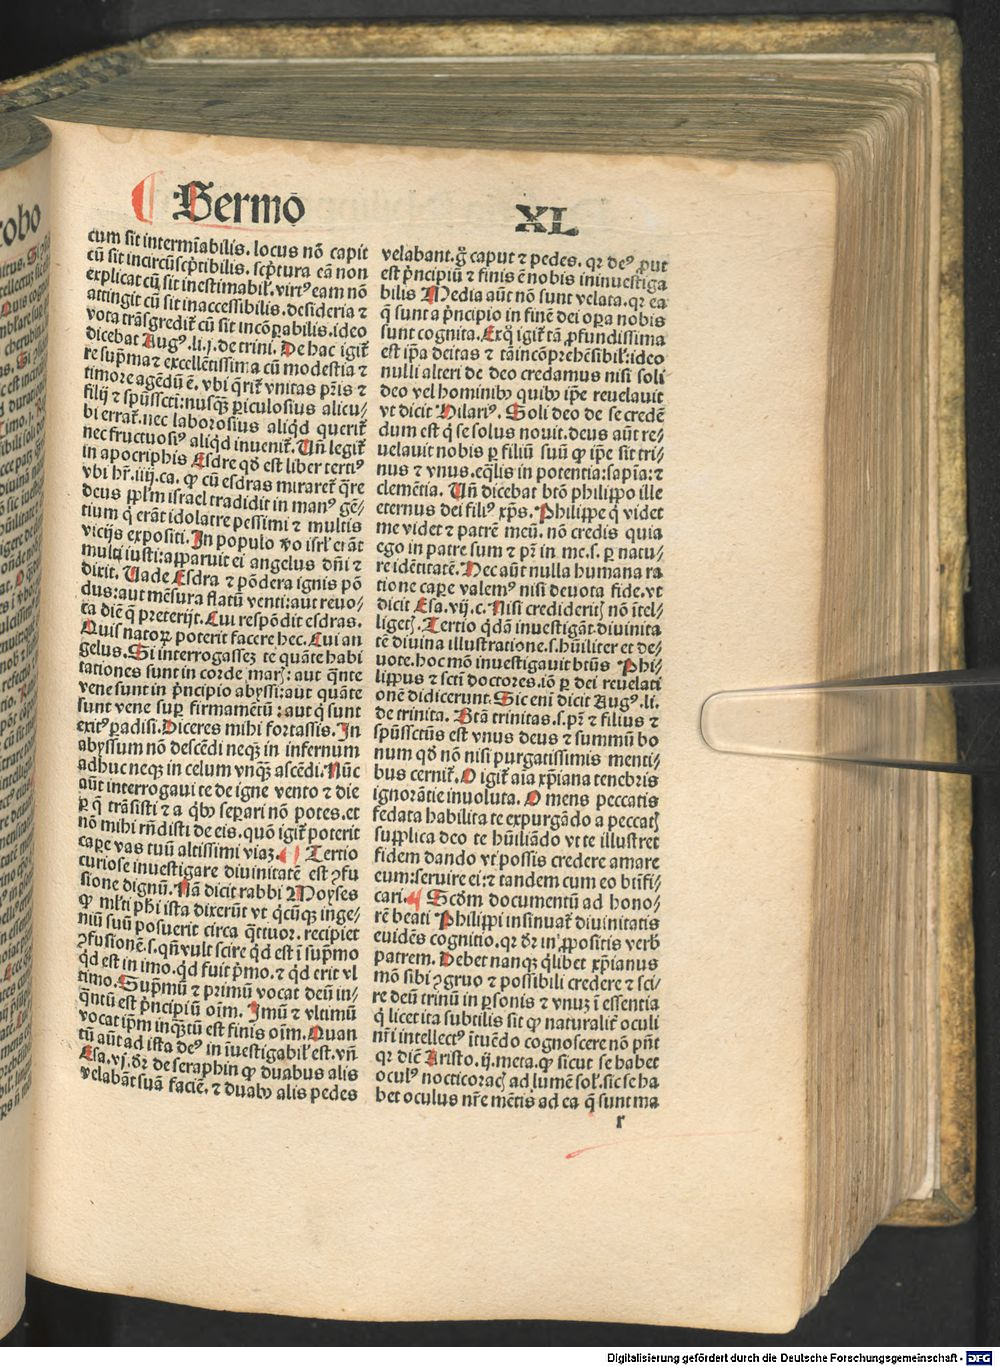 Sermo̅ XL
cum sit intermi̅abilis. locus no̅ capit
cu̅ sit incircu̅scp̅tibilis. scp̅tura ea̅ non
explicat cu̅ sit inestimabil̛. virtꝰ eam no̅
attingit cu̅ sit inaccessibilis. desideria ⁊
vota tra̅sgredit̛ cu̅ sit inco̅ꝑabilis. ideo
dicebat Augꝰ. li. j. de trini. De hac igit̛
re sup̅ma ⁊ excelle̅tissima cu̅ modestia ⁊
timore age̅du̅ e̅. vbi q̅rit̛ vnitas pr̅is ⁊
filij ⁊ sp̅ussc̅ti: nusqȝ ꝑiculosius alicu⸗
bi errat̛. nec laboriosius aliq̅d querit̛
nec fructuosiꝰ aliq̅d inuenit̛. Un̅ legit̛
in apocriphis Esdre qd̅ est liber tertiꝰ
vbi hr̅. iiij. ca. ꝙ cu̅ esdras miraret̛ q̅re
deus ppl̅m israel tradidit in manꝰ ge̅⸗
tium q̅ era̅t idolatre pessimi ⁊ multis
vicijs expositi. In populo v̅o isrl̅ era̅t
multi iusti: apparuit ei angelus dn̅i ⁊
dixit. Uade Esdra ⁊ po̅dera ignis po̅
dus: aut me̅sura flatu̅ venti: aut reuo⸗
ca die̅ q̅ preterijt. Cui respo̅dit esdras.
Quis natoꝝ poterit facere hec. Cui an
gelus. Si interrogassez te qua̅te habi
tationes sunt in corde maris: aut q̅nte
vene sunt in p̅ncipio abyssi: aut qua̅te
sunt vene suꝑ firmame̅tu̅: aut q̅ sunt
exitꝰ ꝑadisi. Diceres mihi fortassis. In
abyssum no̅ desce̅di neqȝ in infernum
adhuc neqȝ in celum vnqȝ asce̅di. Nu̅c
au̅t interrogaui te de igne vento ⁊ die
ꝑ q̅ tra̅sisti ⁊ a q̅bꝰ seꝑari non potes. et
no̅ mihi rn̅disti de eis. quo̅ igit̛ poterit
caꝑe vas tuu̅ altissimi viaz. ¶ Tertio
curiose inuestigare diuinitate̅ est ꝯfu
sione dignu̅. Na̅ dicit rabbi Moyses
ꝙ ml̅ti phi̅ ista dixeru̅t vt q̅cu̅qȝ inge⸗
niu̅ suu̅ posuerit circa q̅ttuor. recipiet
ꝯfusione̅. s. qn̅ vult scire q̅d est i̅ sup̅mo
q̅d est in imo. q̅d fuit p̅mo. ⁊ q̅d erit vl
timo. Sup̅mu̅ ⁊ primu̅ vocat deu̅ in⸗
q̅ntu̅ est p̅ncipiu̅ oi̅m. Imu̅ ⁊ vltimu̅
vocat ip̅m inq̅ntu̅ est finis oi̅m. Quan
tu̅ au̅t ad ista deꝰ in i̅uestigabil̛ est. vn̅
Esa. vj. dr̅ de seraphin ꝙ duabus alis
velaba̅t sua̅ facie̅. ⁊ duabꝰ alis pedes
velabant. g̊ caput ⁊ pedes. qr deꝰ ꝓut
est p̅ncipiu̅ ⁊ finis e̅ nobis ininuestiga
bilis Media au̅t no̅ sunt velata. qr ea
q̅ sunt a p̅ncipio in fine̅ dei oꝑa nobis
sunt cognita. Exq̊ igit̛ ta̅ ꝓfundissima
est ip̅a deitas ⁊ ta̅ inco̅p̅rehe̅sibil̛: ideo
nulli alteri de deo credamus nisi soli
deo vel hominibꝰ quibꝰ ip̅e reuelauit
vt dicit Hilariꝰ. Soli deo de se crede̅
dum est q̅ se solus nouit. deus au̅t re⸗
uelauit nobis ꝑ filiu̅ suu̅ ꝙ ip̅e sit tri⸗
nus ⁊ vnus. eq̅lis in potentia: sapi̅a: ⁊
cleme̅tia. Un̅ dicebat bt̅o philippo ille
eternus dei filiꝰ xp̅s. Philippe q̅ videt
me videt ⁊ patre̅ meu̅. no̅ credis quia
ego in patre sum ⁊ pr̅ in me. s. ꝑ natu⸗
re ide̅titate̅. Hec au̅t nulla humana ra
tione caꝑe valemꝰ nisi deuota fide. vt
dicit Esa. vij. c. Nisi credideritȝ no̅ i̅tel⸗
ligetȝ. Tertio q̅da̅ inuestiga̅t diuinita
te̅ diuina illustratione. s. hu̅iliter et de⸗
uote. hoc mo̅ inuestigauit bt̅us Phi⸗
lippus ⁊ sc̅ti doctores. io̅ ꝑ dei reuelati
one̅ didicerunt. Sic eni̅ dicit Augꝰ. li.
de trinita. Bt̅a trinitas. s. pr̅ ⁊ filius ⁊
sp̅ussc̅tus est vnus deus ⁊ summu̅ bo
num qd̅ no̅ nisi purgatissimis menti⸗
bus cernit̛. O igit̛ ai̅a xp̅iana tenebris
ignora̅tie inuoluta. O mens peccatis
fedata habilita te expurga̅do a peccatȝ
supplica deo te hu̅ilia̅do vt te illustret
fidem dando vt possis credere amare
eum: seruire ei: ⁊ tandem cum eo bt̅ifi⸗
cari. ¶ Scd̅m documentu̅ ad hono⸗
re̅ beati Philippi insinuat̛ diuinitatis
euide̅s cognitio. qr dr̅ in ꝓpositis verb̅
patrem. Debet nanqȝ q̅libet xp̅ianus
mo̅ sibi ꝯgruo ⁊ possibili credere ⁊ sci⸗
re deu̅ trinu̅ in ꝑsonis ⁊ vnuz i̅ essentia
q̅ licet ita subtilis sit ꝙ naturalit̛ oculi
nr̅i intellectꝰ i̅tue̅do cognoscere no̅ pn̅t
qr die̅ Aristo. ij. meta. ꝙ sicut se habet
oculꝰ nocticoracȝ ad lume̅ sol̛. sic se ha
bet oculus nr̅e me̅tis ad ea q̅ sunt ma
r
Digitalisierung gefördert durch die Deutsche Forschungsgemeinschaft - DFG